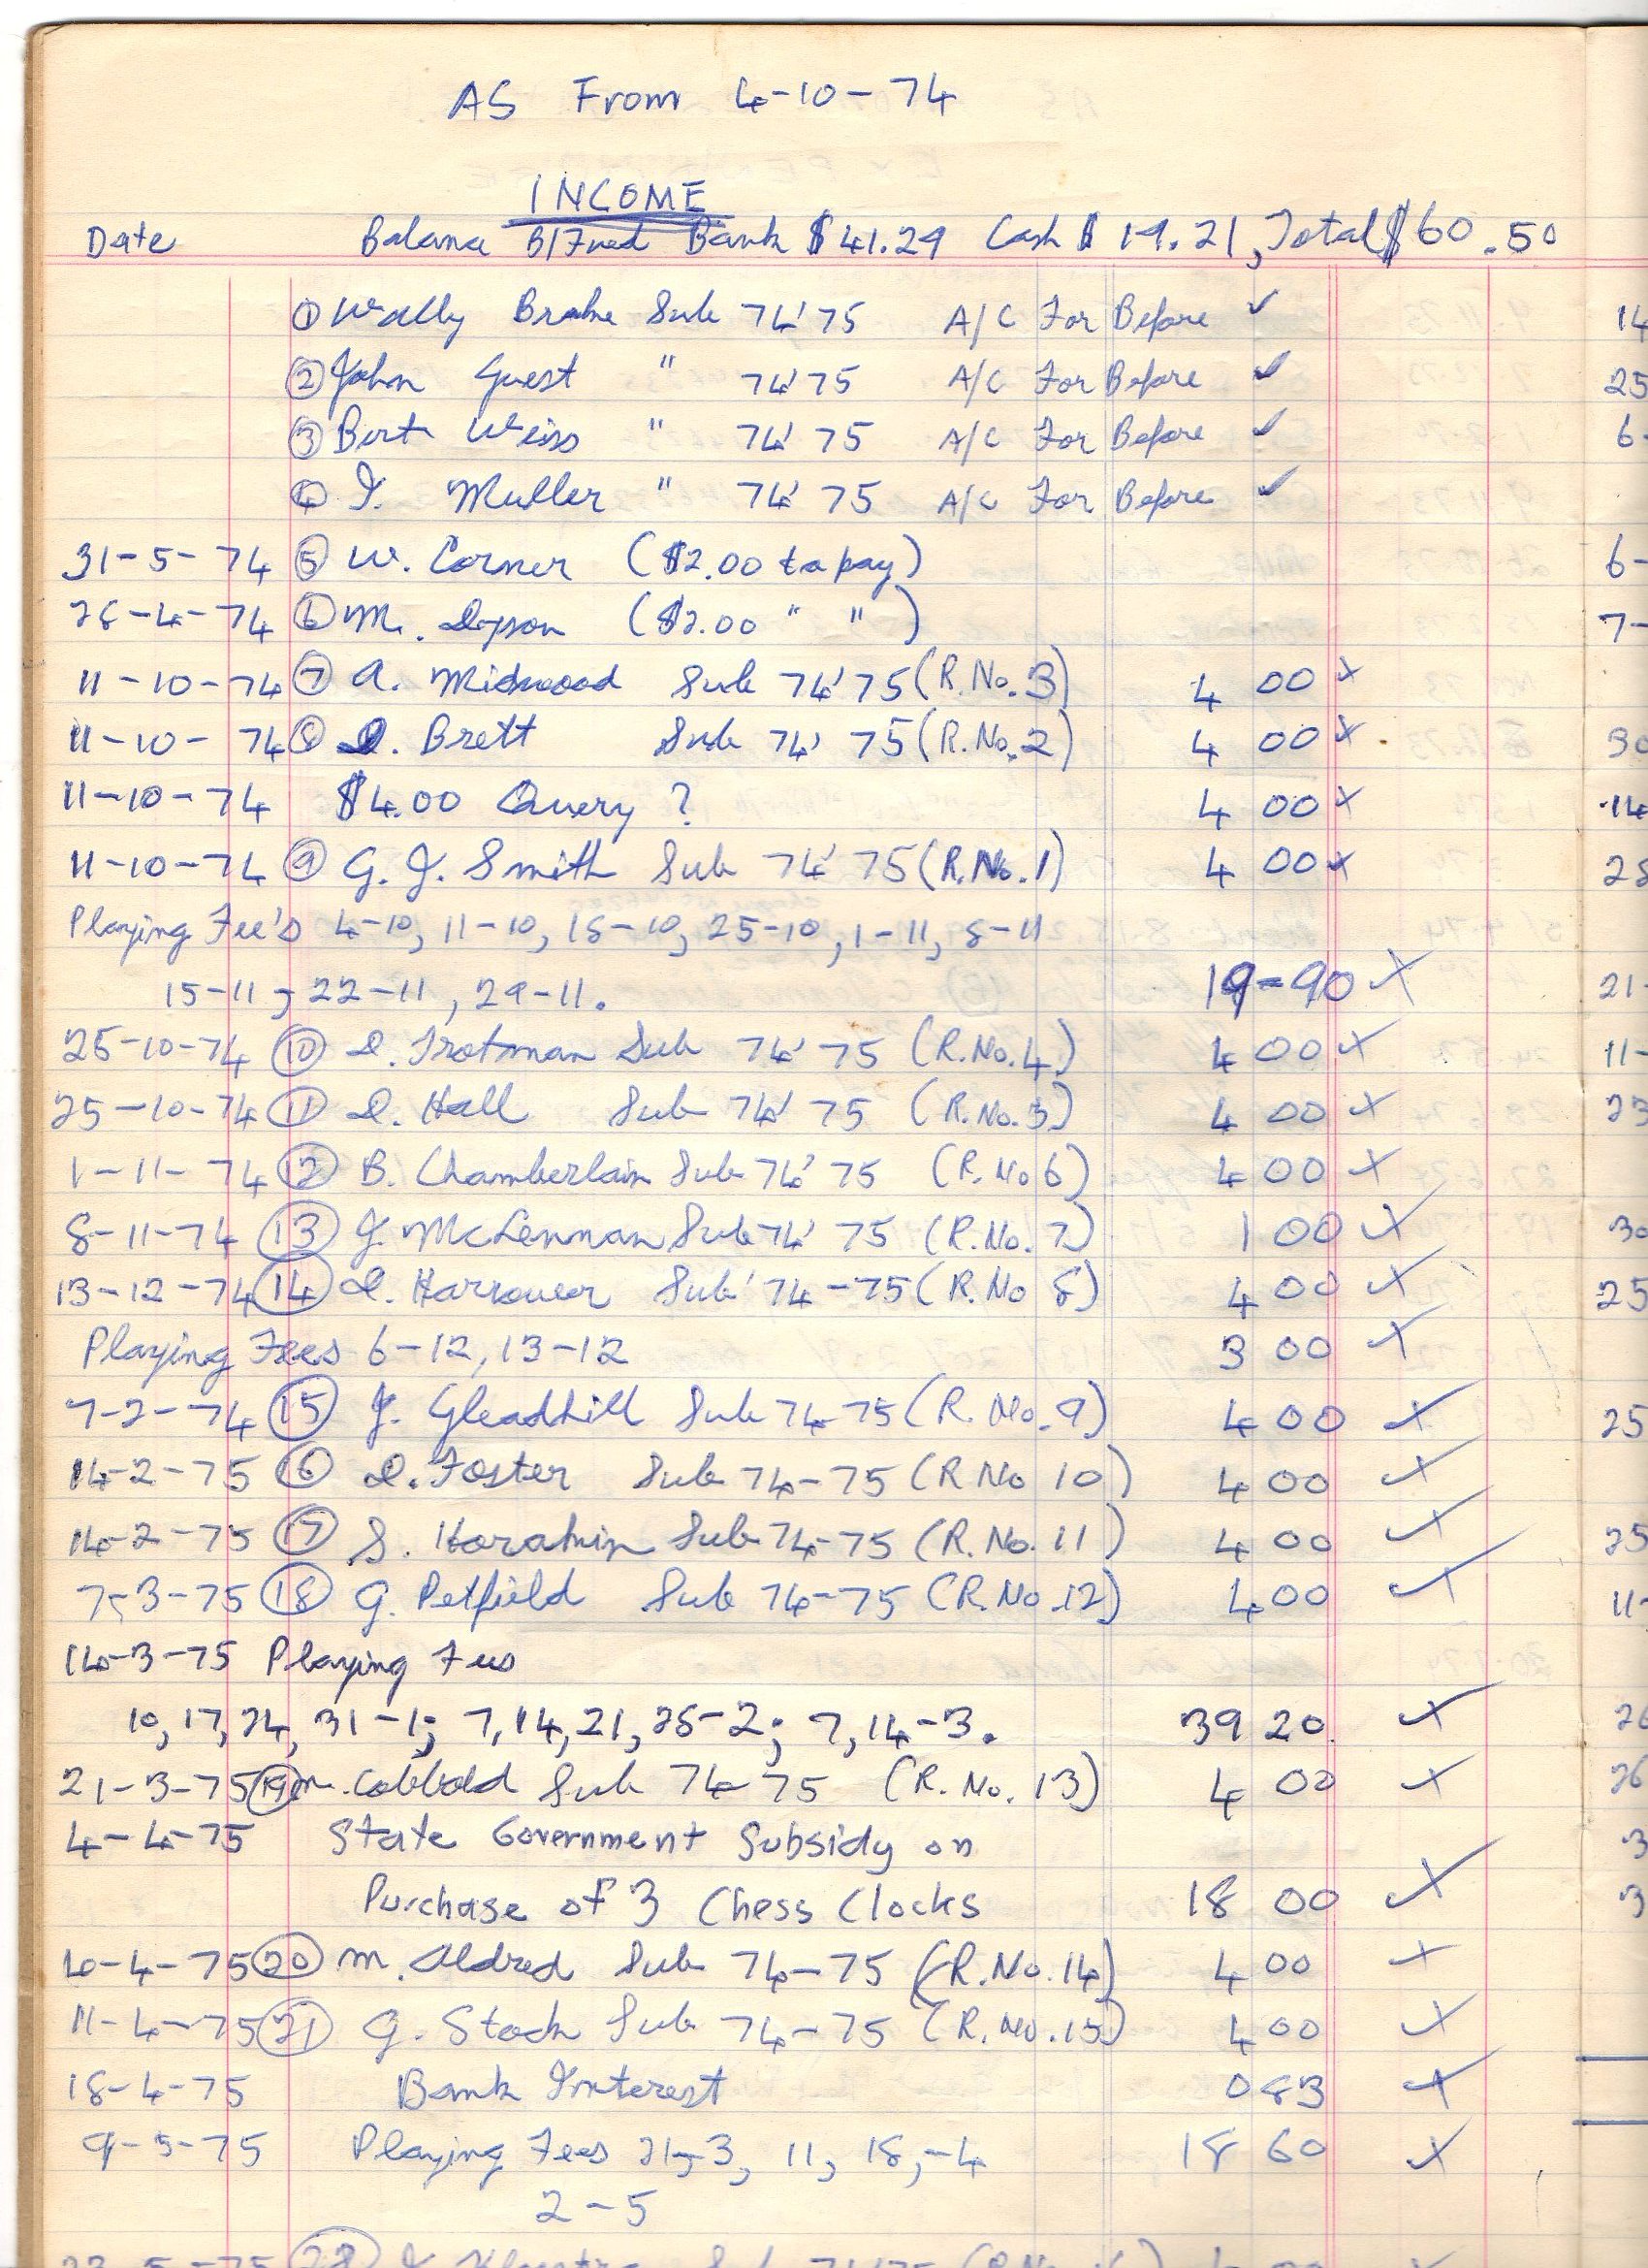 AS From 4-10-74
INCOME
Date Balance B/Fwed Bank $41.29 Cash $19.21, Total $60.50
① Wally Brake Sub 74' 75 A/C For Before ✓
14
② John Guest " 74' 75 A/C For Before ✓
25
③ Bert Weiss " 74' 75 A/C For Before ✓
6-
④ J. Muller " 74' 75 A/C For Before ✓
31-5-74 ⑤ W. Corner ($2.00 to pay)
6-
28-4-74 ⑥ M. Dyson ($2.00 " ")
7-
11-10-74 ⑦ A. Midwood Sub 74' 75 (R.No.3) 4 00 x
11-10-74 ⑧ D. Brett Sub 74' 75 (R.No.2) 4 00 x
30
11-10-74 $4.00 Query ? 4 00 x
14
11-10-74 ⑨ G. J. Smith Sub 74' 75 (R.No.1) 4 00 x
28
Playing Fee's 4-10, 11-10, 18-10, 25-10, 1-11, 8-11
15-11, 22-11, 29-11. 19-90 x
21-
25-10-74 ⑩ D. Trotman Sub 74' 75 (R.No.4) 4 00 x
11-
25-10-74 ⑪ D. Hall Sub 74' 75 (R.No.5) 4 00 x
23
1-11-74 ⑫ B. Chamberlain Sub 74' 75 (R.No 6) 4 00 x
8-11-74 ⑬ J. McLennan Sub 74' 75 (R.No. 7) 1 00 x
30
13-12-74 ⑭ D. Harrower Sub' 74-75 (R.No 8) 4 00 x
25
Playing Fees 6-12, 13-12 3 00 x
7-2-74 ⑮ J. Gleadhill Sub 74-75 (R.No.9) 4 00 x
25
14-2-75 ⑯ D. Foster Sub 74-75 (R No 10) 4 00 x
14-2-75 ⑰ S. Sub 74-75 (R.No. 11) 4 00 x
25
7-3-75 ⑱ G. Petfield Sub 74-75 (R.No.12) 4 00 x
11-
14-3-75 Playing Fees
10, 17, 24, 31-1; 7, 14, 21, 28-2; 7, 14-3. 39 20 x
26
21-3-75 ⑲ M. Cobbold Sub 74-75 (R.No. 13) 4 00 x
26
4-4-75 State Government Subsidy on
3
Purchase of 3 Chess Clocks 18 00 x
3
4-4-75 ⑳ M. Aldred Sub 74-75 (R.No.14) 4 00 x
11-4-75 ㉑ G. Stock Sub 74-75 (R.No.15) 4 00 x
18-4-75 Bank Interest 0 83 x
9-5-75 Playing Fees 21-3, 11, 18,-4 18 60 x
2-5